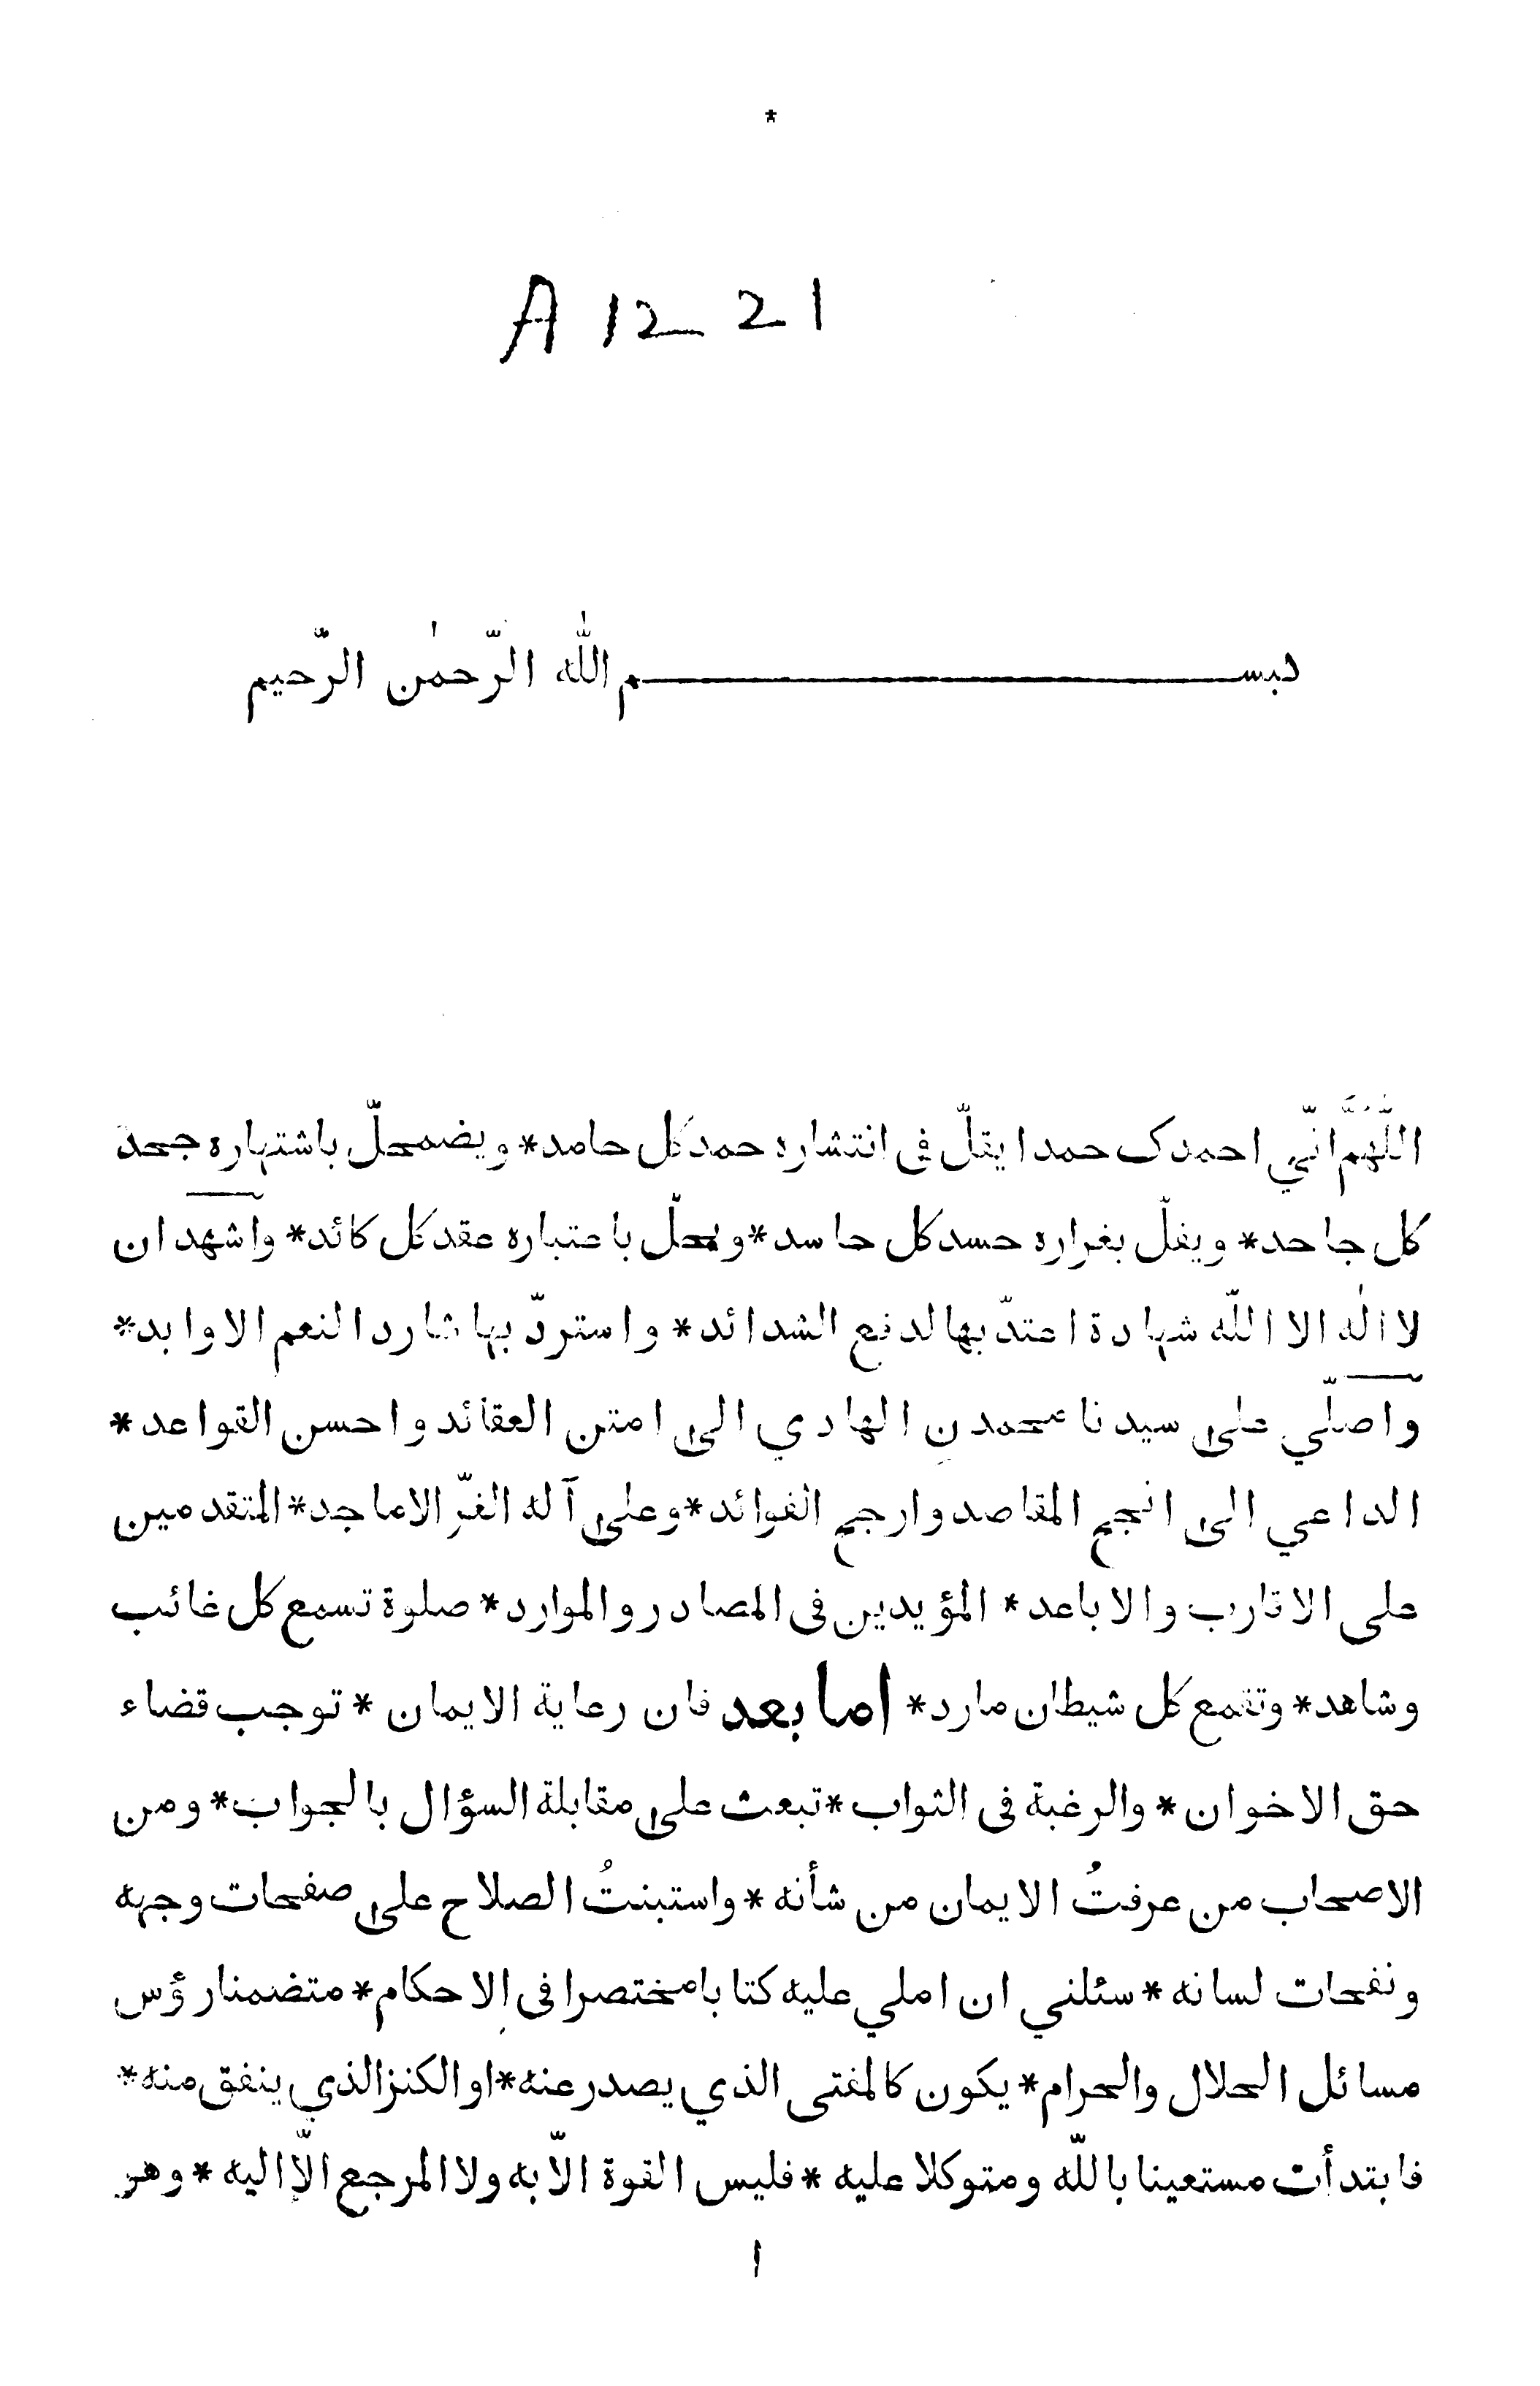 *
A 12 21
بســـــــــم اللّٰه الرّحمٰن الرّحيم
اللّهمّ انّي احمدك حمدا يقلّ في انتشاره حمد كل حامد* ويضمحلّ باشتهاره جحد
كل جاحد* ويفلّ بغراره حسد كل حاسد* ويحلّ باعتباره عقد كل كائد* واشهد ان
لا اله الا اللّه شهادة اعتدّ بها لدفع الشدائد* واستردّ بها شارد النعم الاوابد*
واصلّي على سيدنا محمدن الهادي الى امتن العقائد واحسن القواعد*
الداعي الى انجح المقاصد وارجح الفوائد* وعلى آله الغرّ الاماجد* المتقدمين
على الاقارب والاباعد* المؤيدين في المصادر والموارد* صلوة تسمع كل غائب
وشاهد* وتقمع كل شيطان مارد* اما بعد فان رعاية الايمان* توجب قضاء
حق الاخوان* والرغبة في الثواب* تبعث على مقابلة السؤال بالجواب* ومن
الاصحاب من عرفتُ الايمان من شأنه* واستبنتُ الصلاح على صفحات وجهه
ونفحات لسانه* سئلني ان املي عليه كتابا مختصرا في الاحكام* متضمنا رؤس
مسائل الحلال والحرام* يكون كالمفتى الذي يصدر عنه* او الكنز الذي ينفق منه*
فابتدأت مستعينا باللّه ومتوكلا عليه* فليس القوة الّا به ولا المرجع الّا اليه* وهو
ا